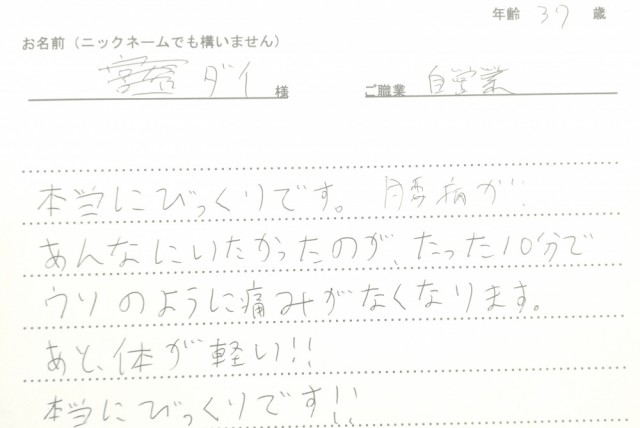 年齢 37 歳
お名前（ニックネームでも構いません）
ダイ 様 ご職業 自営業
本当にびっくりです。腰病が!!
あんなにいたかったのが、たった10分で
ウソのように痛みがなくなります。
あと、体が軽い!!
本当にびっくりです!!